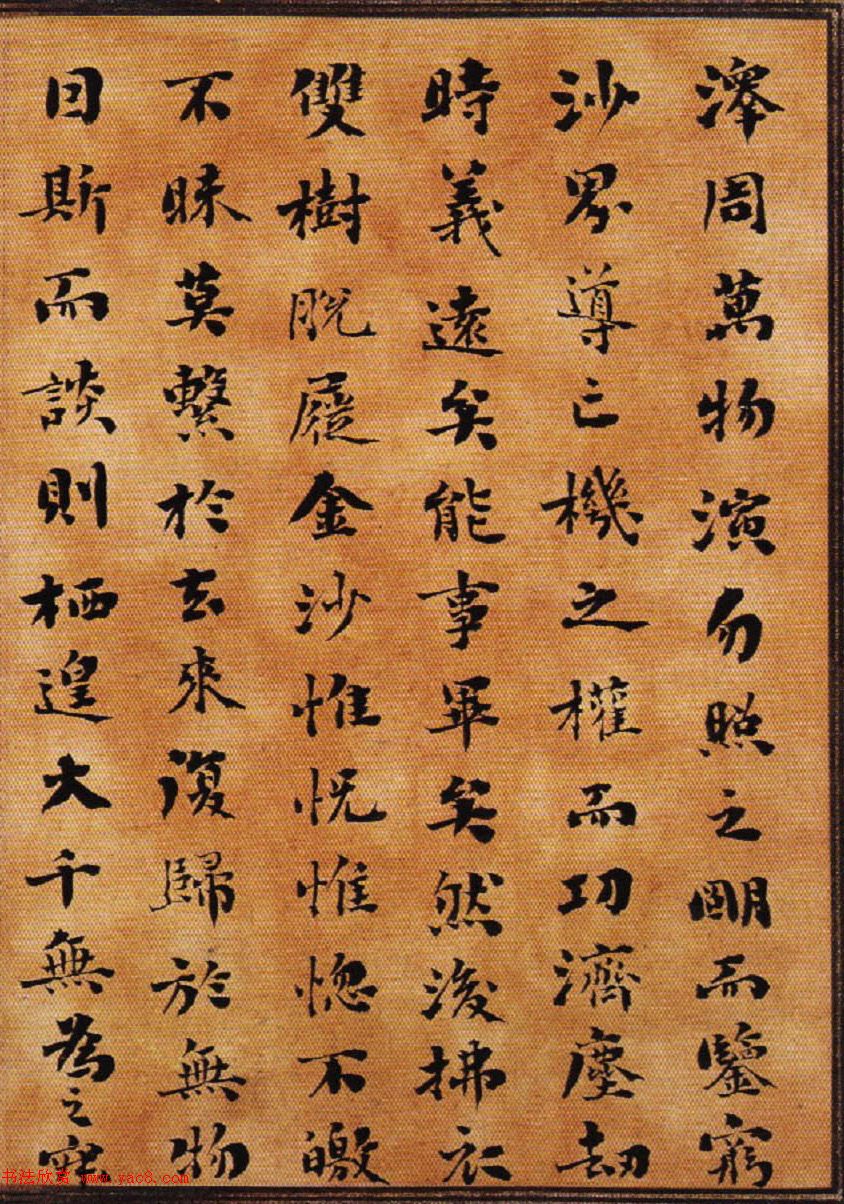 澤周萬物演勿照之明而鑒窮
沙界導亡機之權而功濟塵劫
時義遠矣能事畢矣然後拂衣
雙樹脫屣金沙惟怳惟惚不皦
不昧莫繫於去來復歸於無物
因斯而談則栖遑大千無為之寂
书法欣赏 www.yac8.com